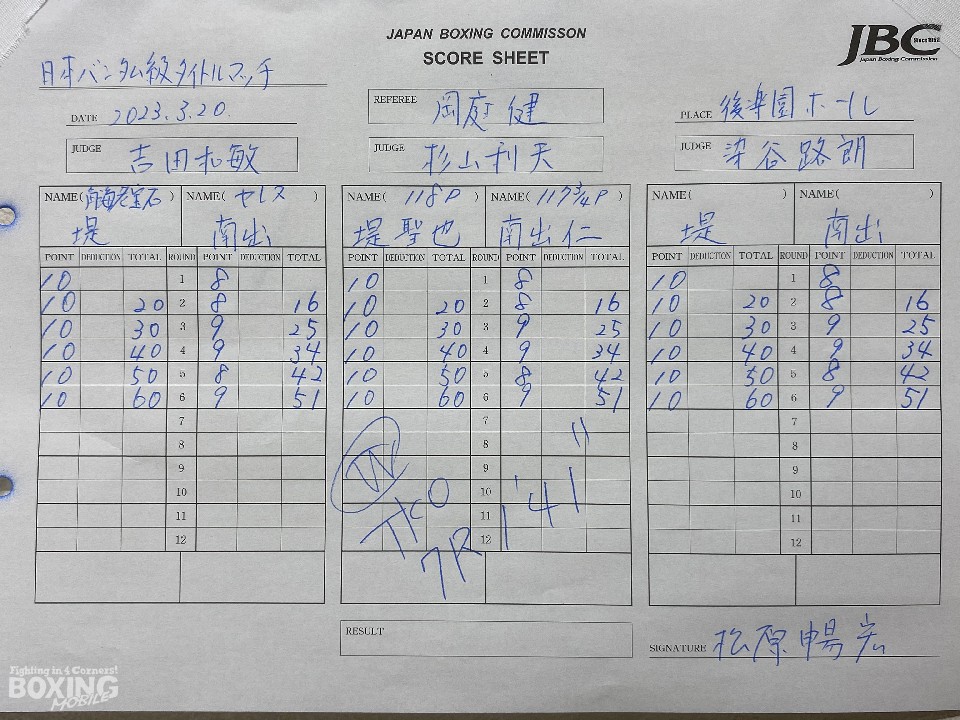 JAPAN BOXING COMMISSON
SCORE SHEET
JBC
Since 1952
Japan Boxing Commission
日本バンタム級タイトルマッチ
DATE 2023.3.20.
REFEREE 岡庭健
PLACE 後楽園ホール
JUDGE 吉田和敏
JUDGE 杉山利夫
JUDGE 染谷路朗
NAME( ) NAME(セレス)
堤 南出
NAME(118P) NAME(117 3/4P)
堤聖也 南出仁
NAME( ) NAME( )
堤 南出
POINT DEDUCTION TOTAL ROUND POINT DEDUCTION TOTAL POINT DEDUCTION TOTAL ROUND POINT DEDUCTION TOTAL POINT DEDUCTION TOTAL ROUND POINT DEDUCTION TOTAL
10 1 8 10 1 8 10 1 8
10 20 2 8 16 10 20 2 8 16 10 20 2 8 16
10 30 3 9 25 10 30 3 9 25 10 30 3 9 25
10 40 4 9 34 10 40 4 9 34 10 40 4 9 34
10 50 5 8 42 10 50 5 8 42 10 50 5 8 42
10 60 6 9 51 10 60 6 9 51 10 60 6 9 51
7 7 7
8 8 8
9 9 9
10 10 10
11 11 11
12 12 12
W
TKO
7R 1'41"
RESULT
SIGNATURE 松原暢宏
Fighting in 4 Corners!
BOXING
MOBILE